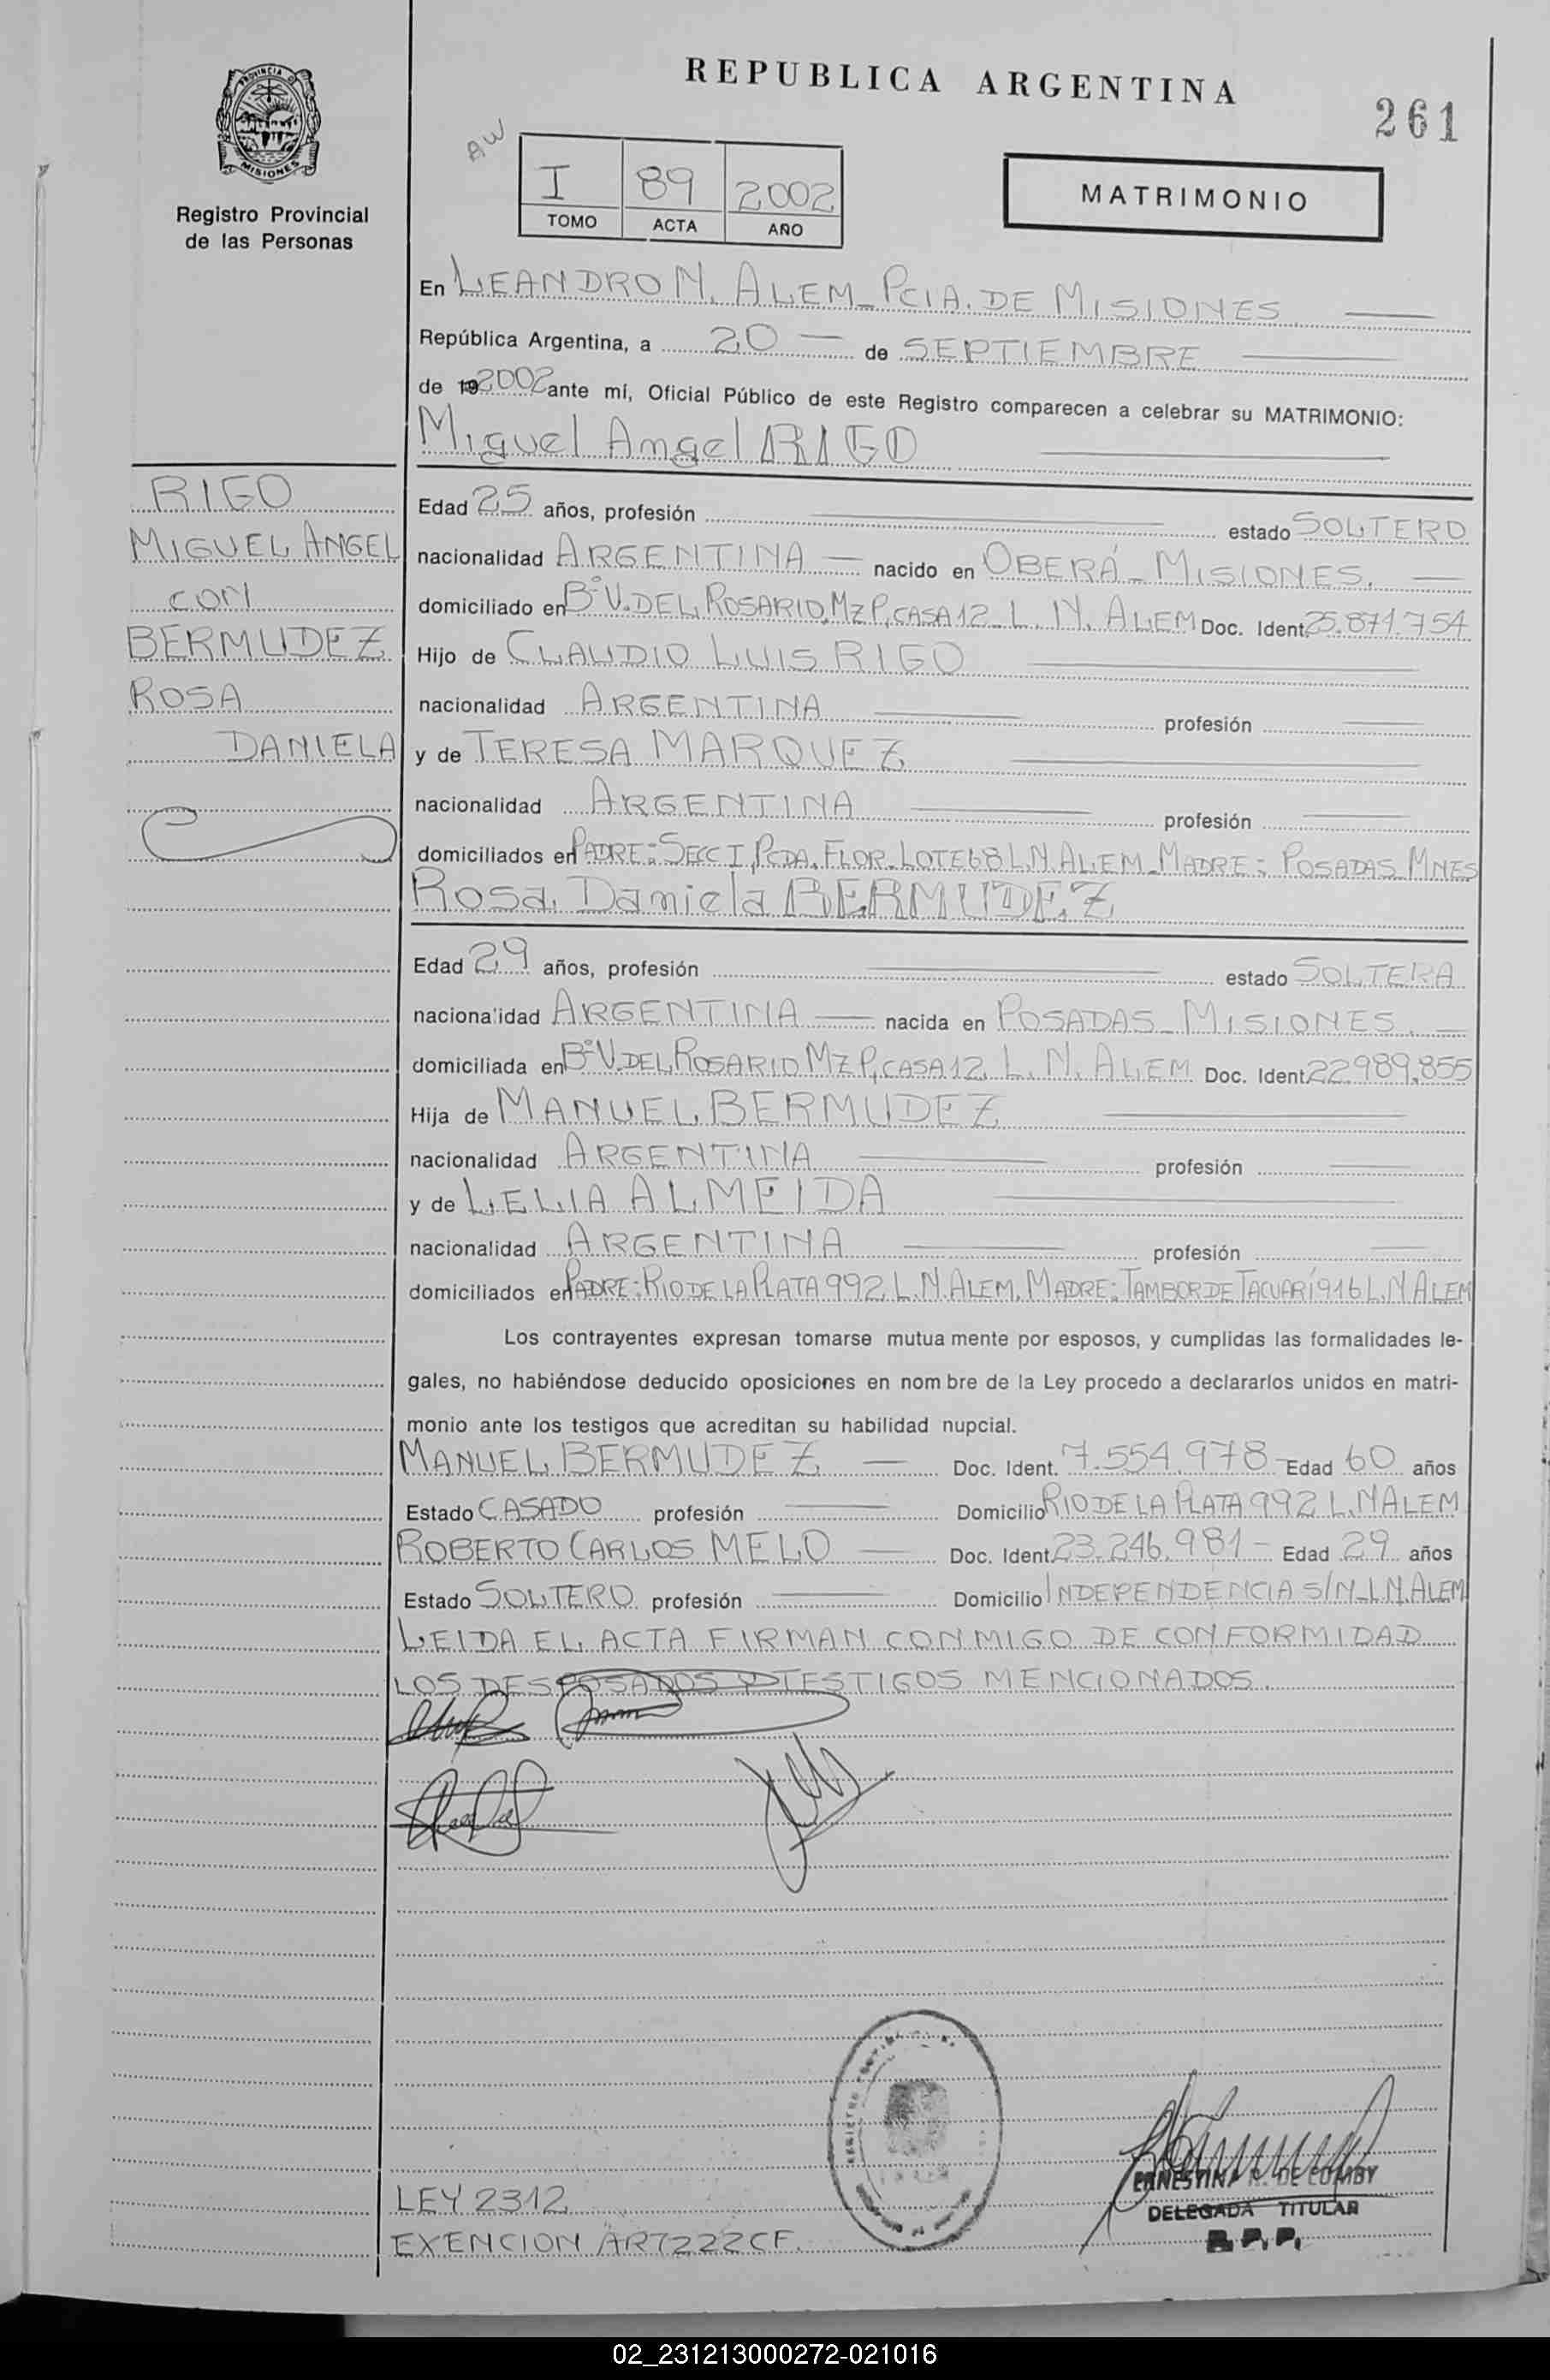 REPUBLICA ARGENTINA
261
PROVINCIA DE
MISIONES
Registro Provincial
de las Personas
AW
I 89 2002
TOMO ACTA AÑO
MATRIMONIO
En LEANDRO N. ALEM_PCIA. DE MISIONES
República Argentina, a 20 — de SEPTIEMBRE
de 192002 ante mí, Oficial Público de este Registro comparecen a celebrar su MATRIMONIO:
Miguel Angel RIGO
RIGO
MIGUEL ANGEL
CON
BERMUDEZ
ROSA
DANIELA
Edad 25 años, profesión — estado SOLTERO
nacionalidad ARGENTINA — nacido en OBERÁ_MISIONES. —
domiciliado en Bº V. DEL ROSARIO, MZ P, CASA 12_L. N. ALEM Doc. Ident. 25.871.754
Hijo de CLAUDIO LUIS RIGO
nacionalidad ARGENTINA — profesión —
y de TERESA MARQUEZ
nacionalidad ARGENTINA — profesión —
domiciliados en PADRE: SECC I, PCDA. FLOR. LOTE 68 L.N ALEM_MADRE: POSADAS_MNES
Rosa Daniela BERMUDEZ
Edad 29 años, profesión — estado SOLTERA
nacionalidad ARGENTINA — nacida en POSADAS_MISIONES. —
domiciliada en Bº V. DEL ROSARIO MZ P, CASA 12 L. N. ALEM Doc. Ident. 22.989.855
Hija de MANUEL BERMUDEZ
nacionalidad ARGENTINA — profesión —
y de LELIA ALMEIDA
nacionalidad ARGENTINA — profesión —
domiciliados en PADRE: RIO DE LA PLATA 992 L.N. ALEM. MADRE: TAMBOR DE TACUARÍ 916 L.N ALEM
Los contrayentes expresan tomarse mutua mente por esposos, y cumplidas las formalidades le-
gales, no habiéndose deducido oposiciones en nom bre de la Ley procedo a declararlos unidos en matri-
monio ante los testigos que acreditan su habilidad nupcial.
MANUEL BERMUDEZ — Doc. Ident. 7.554.978 - Edad 60 años
Estado CASADO profesión — Domicilio RIO DE LA PLATA 992 L.N ALEM
ROBERTO CARLOS MELO — Doc. Ident. 23.246.981 - Edad 29 años
Estado SOLTERO profesión — Domicilio INDEPENDENCIA S/N_L.N. ALEM
LEIDA EL ACTA FIRMAN CONMIGO DE CONFORMIDAD
LOS DESPOSADOS Y TESTIGOS MENCIONADOS.
LEY 2312
EXENCION ART 222 CF.
ERNESTINA DE
DELEGADA TITULAR
R. P. P.
02_231213000272-021016